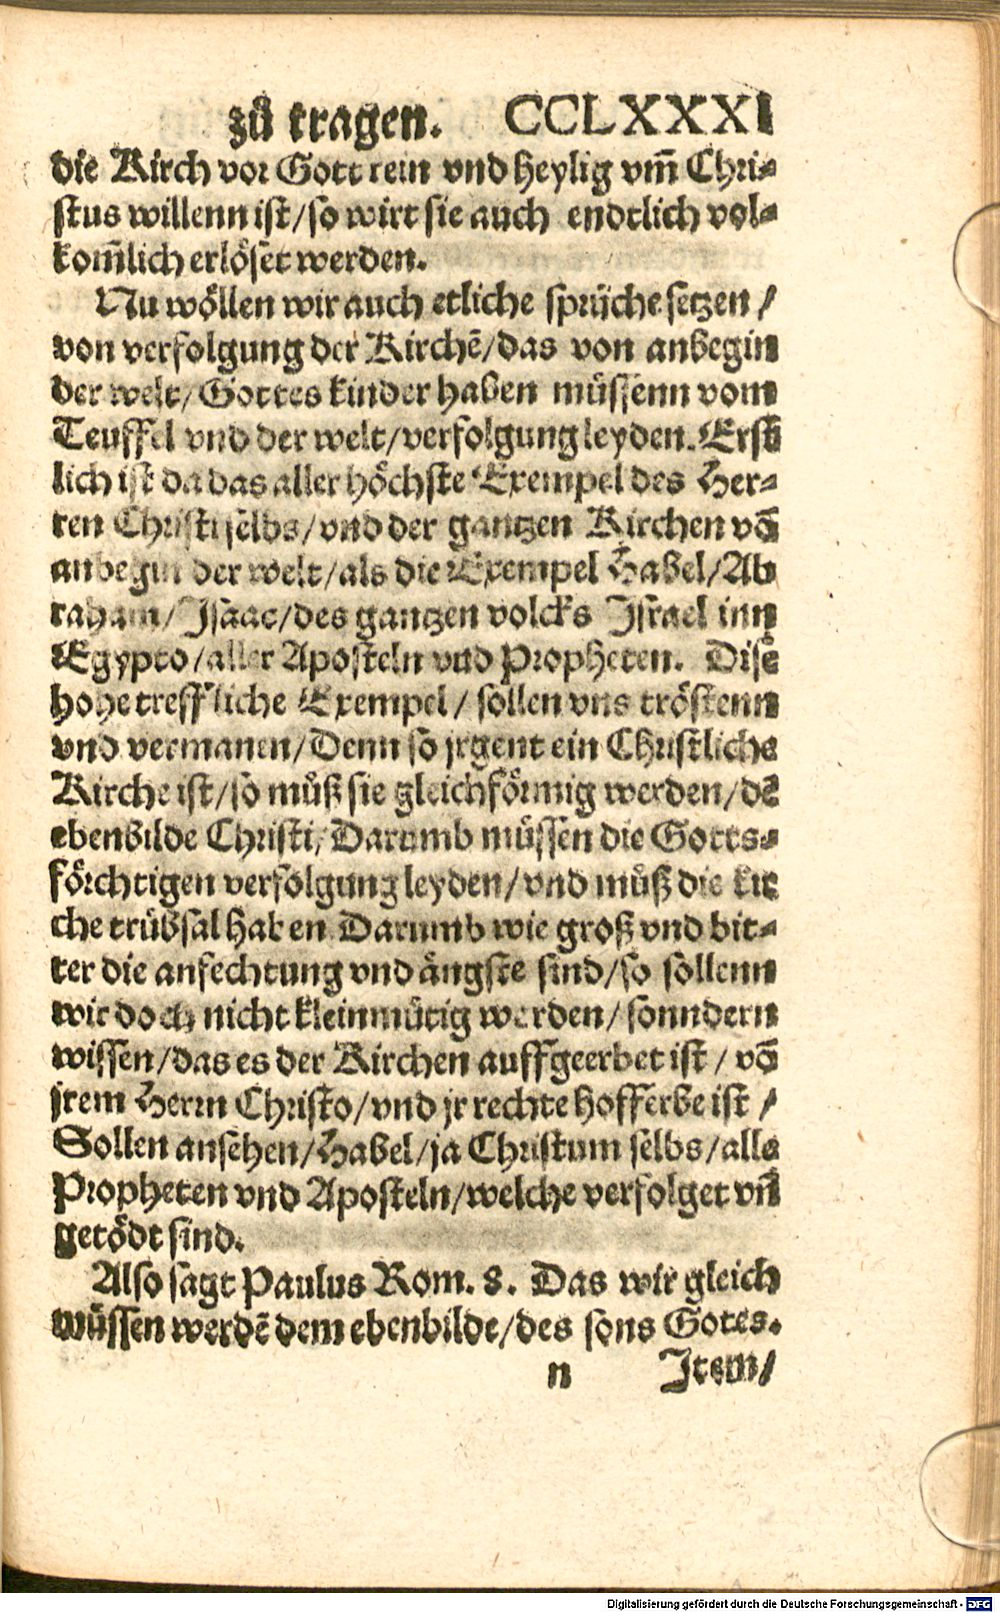 zů tragen. CCLXXXI
die Kirch vor Gott rein vnd heylig vm̃ Chri-
stus willenn ist/so wirt sie auch endtlich vol-
kom̃lich erlöset werden.
Nu wöllen wir auch etliche sprüche setzen/
von verfolgung der Kirchẽ/das von anbegin
der welt/Gottes kinder haben müssenn vom
Teuffel vnd der welt/verfolgung leyden. Erst
lich ist da das aller höchste Exempel des Her-
ren Christi selbs/vnd der gantzen Kirchen võ
anbegin der welt/als die Exempel Habel/Ab
raham/Isaac/des gantzen volcks Israel inn
Egypto/aller Aposteln vnd Propheten. Dise
hohe treffliche Exempel/sollen vns tröstenn
vnd vermanen/Denn so jrgent ein Christliche
Kirche ist/so můß sie gleichförmig werden/dẽ
ebenbilde Christi, Darumb müssen die Gotts-
förchtigen verfolgung leyden/vnd můß die kir
che trübsal haben Darumb wie groß vnd bit-
ter die anfechtung vnd ängste sind/so sollenn
wir doch nicht kleinmütig werden/sonndern
wissen/das es der Kirchen auffgeerbet ist/võ
jrem Herrn Christo/vnd jr rechte hofferbe ist/
Sollen ansehen/Habel/ja Christum selbs/alle
Propheten vnd Aposteln/welche verfolget vñ
getödt sind.
Also sagt Paulus Rom. 8. Das wir gleich
müssen werdẽ dem ebenbilde/des sons Gotes.
n Item/
Digitalisierung gefördert durch die Deutsche Forschungsgemeinschaft - DFG